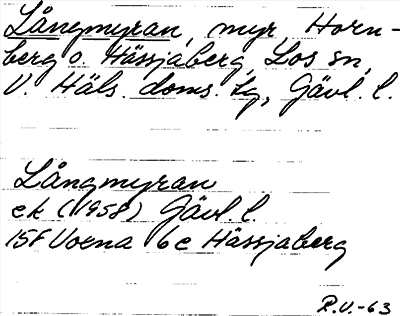 Långmyran, myr, Horn-
berg o. Hässjaberg, Los sn,
V. Häls. doms. tg, Gävl. l.
Långmyran
ek (1958) Gävl. l.
15F Voxna 6e Hässjaberg
R.V.-63